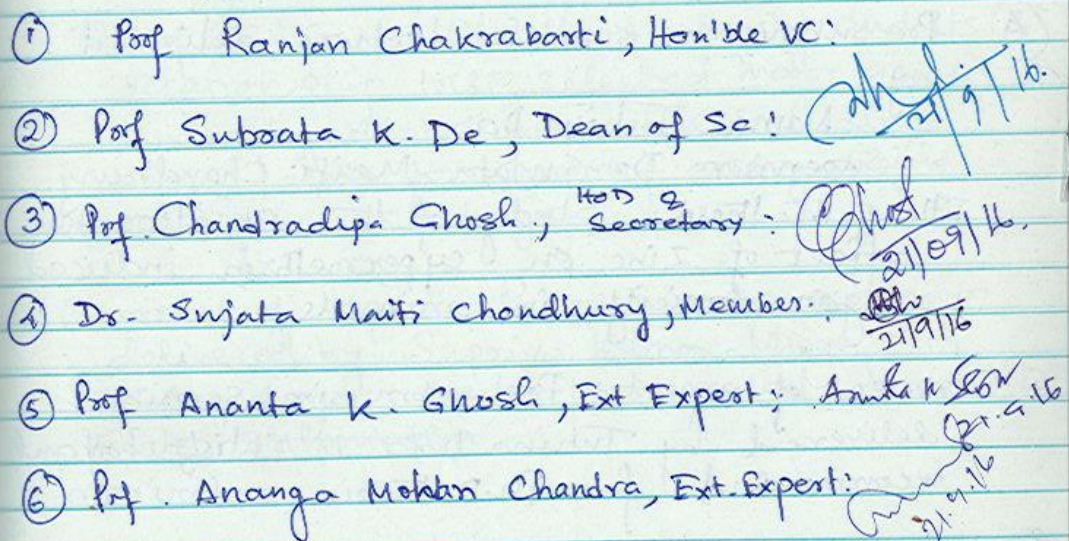 ① Prof Ranjan Chakrabarti, Hon'ble VC:
21/9/16.
② Prof Subrata K. De, Dean of Sc:
③ Prof. Chandradipa Ghosh, HOD & Secretary: Ghosh
21/09/16.
④ Dr. Sujata Maiti Chondhury, Member:
21/9/16
⑤ Prof Ananta K. Ghosh, Ext Expert:
21.9.16
⑥ Prf. Ananga Mohan Chandra, Ext. Expert:
21.9.16